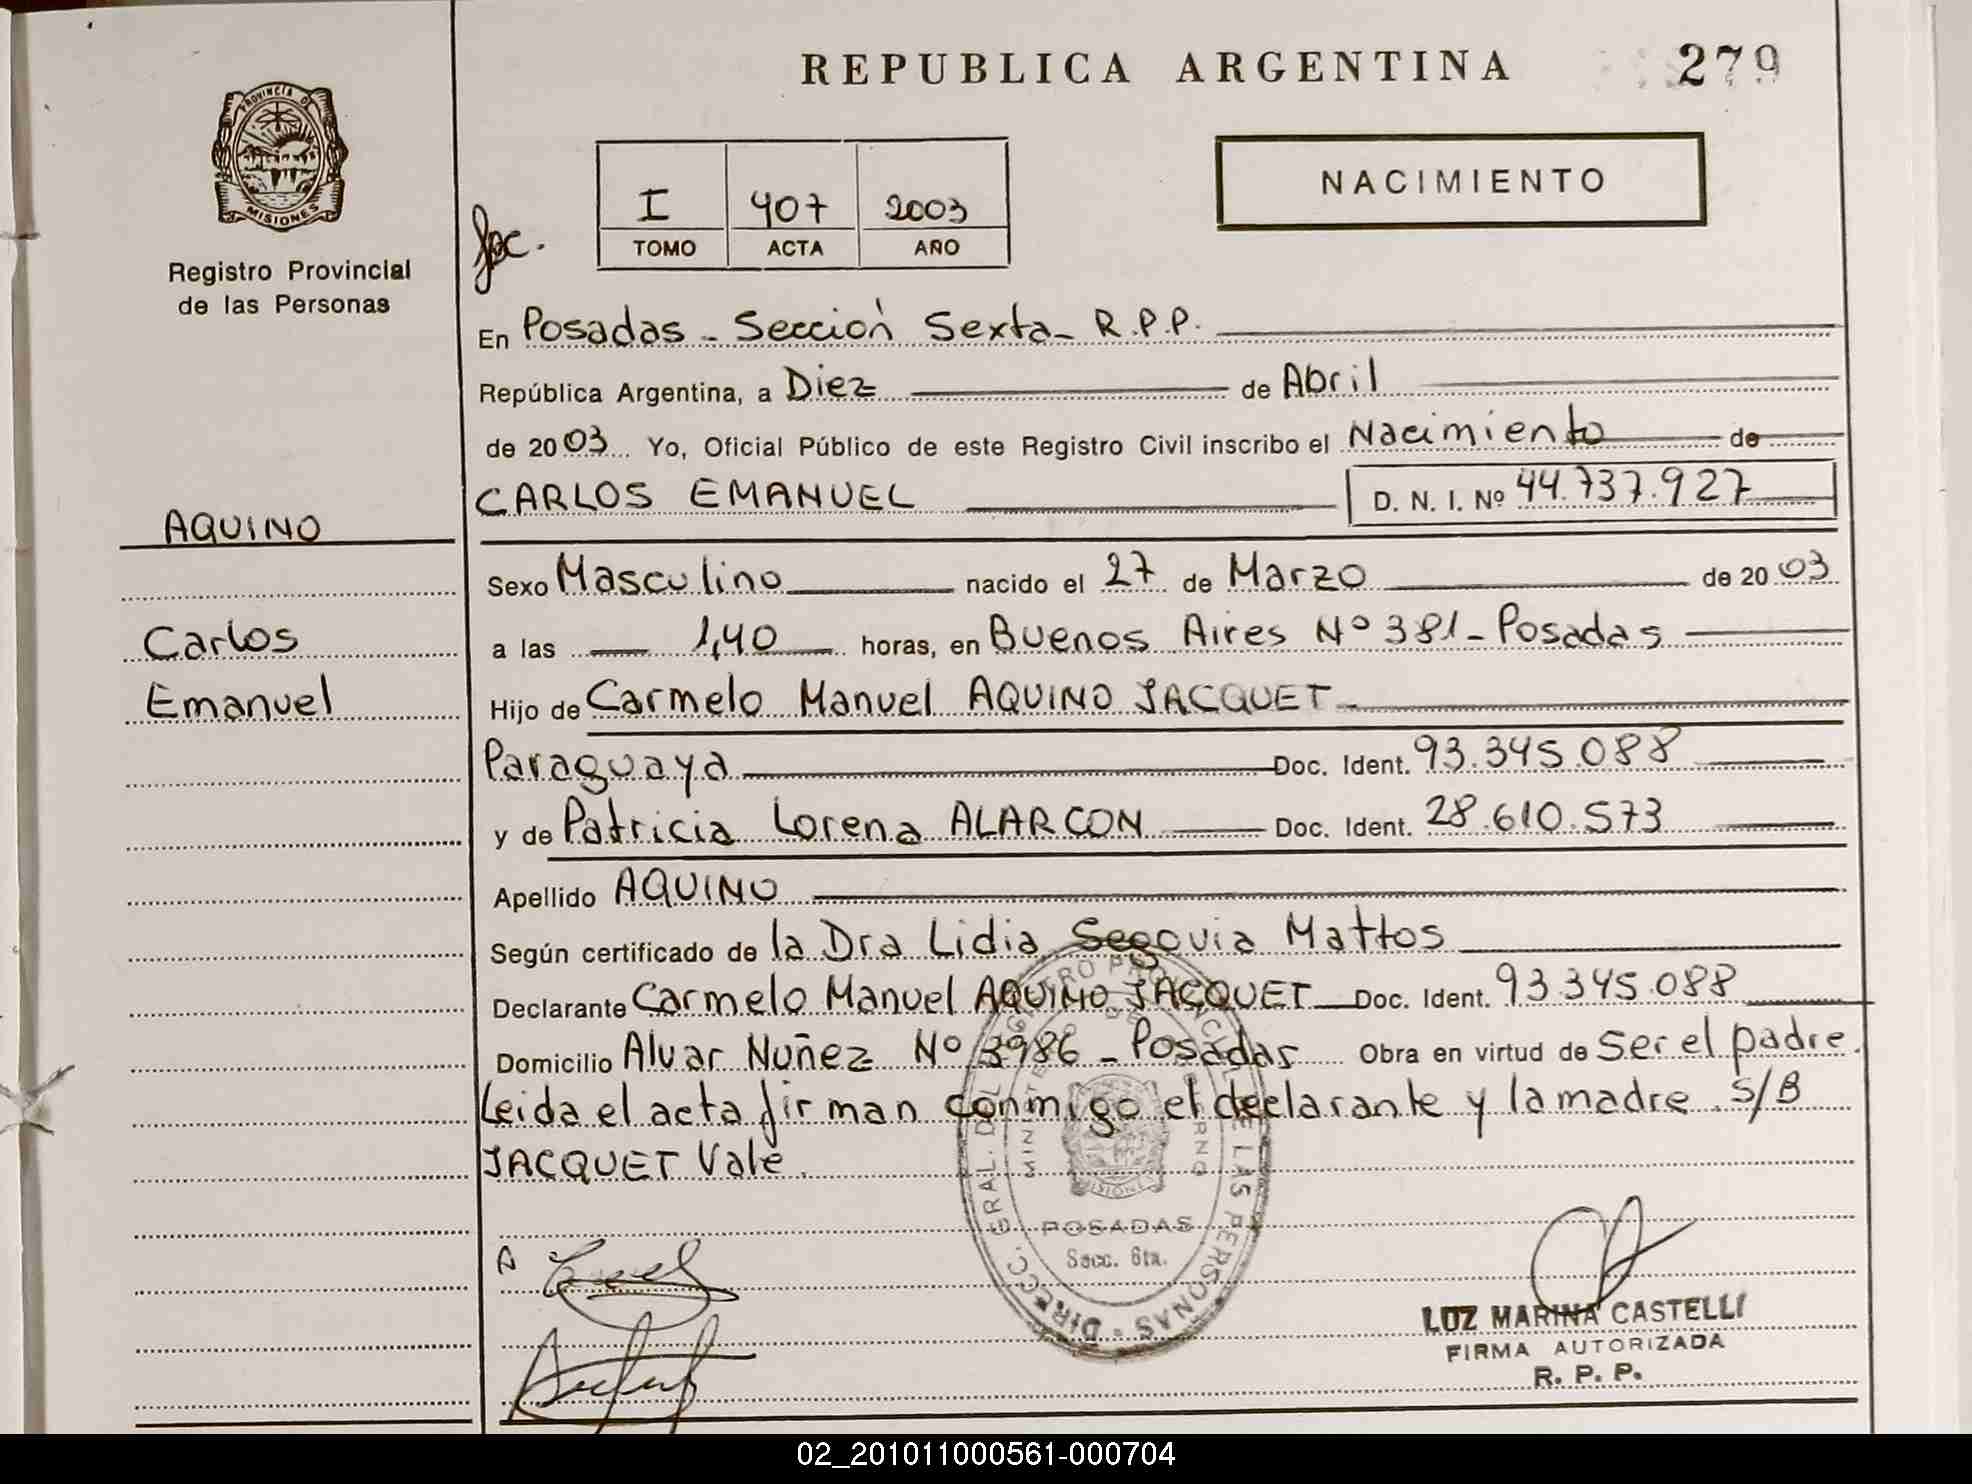 REPUBLICA ARGENTINA
279
PROVINCIA DE
MISIONES
Registro Provincial
de las Personas
I 407 2003
TOMO ACTA AÑO
NACIMIENTO
En Posadas - Sección Sexta - R.P.P.
República Argentina, a Diez de Abril
de 2003 Yo, Oficial Público de este Registro Civil inscribo el Nacimiento de
CARLOS EMANUEL D. N. I. Nº 44.737.927
AQUINO
Carlos
Emanuel
Sexo Masculino nacido el 27 de Marzo de 2003
a las 1,40 horas, en Buenos Aires Nº 381 - Posadas
Hijo de Carmelo Manuel AQUINO JACQUET
Paraguaya Doc. Ident. 93.345.088
y de Patricia Lorena ALARCON Doc. Ident. 28.610.573
Apellido AQUINO
Según certificado de la Dra Lidia Segovia Mattos
Declarante Carmelo Manuel AQUINO JACQUET Doc. Ident. 93.345.088
Domicilio Alvar Nuñez Nº 3986 - Posadas Obra en virtud de Ser el padre.
Leida el acta firman conmigo el declarante y la madre. S/B
JACQUET Vale.
DIRECC. GRAL. DEL REGISTRO PROVINCIAL DE LAS PERSONAS
MINISTERIO DE GOBIERNO
MISIONES
POSADAS
Secc. 6ta.
LUZ MARINA CASTELLI
FIRMA AUTORIZADA
R. P. P.
02_201011000561-000704